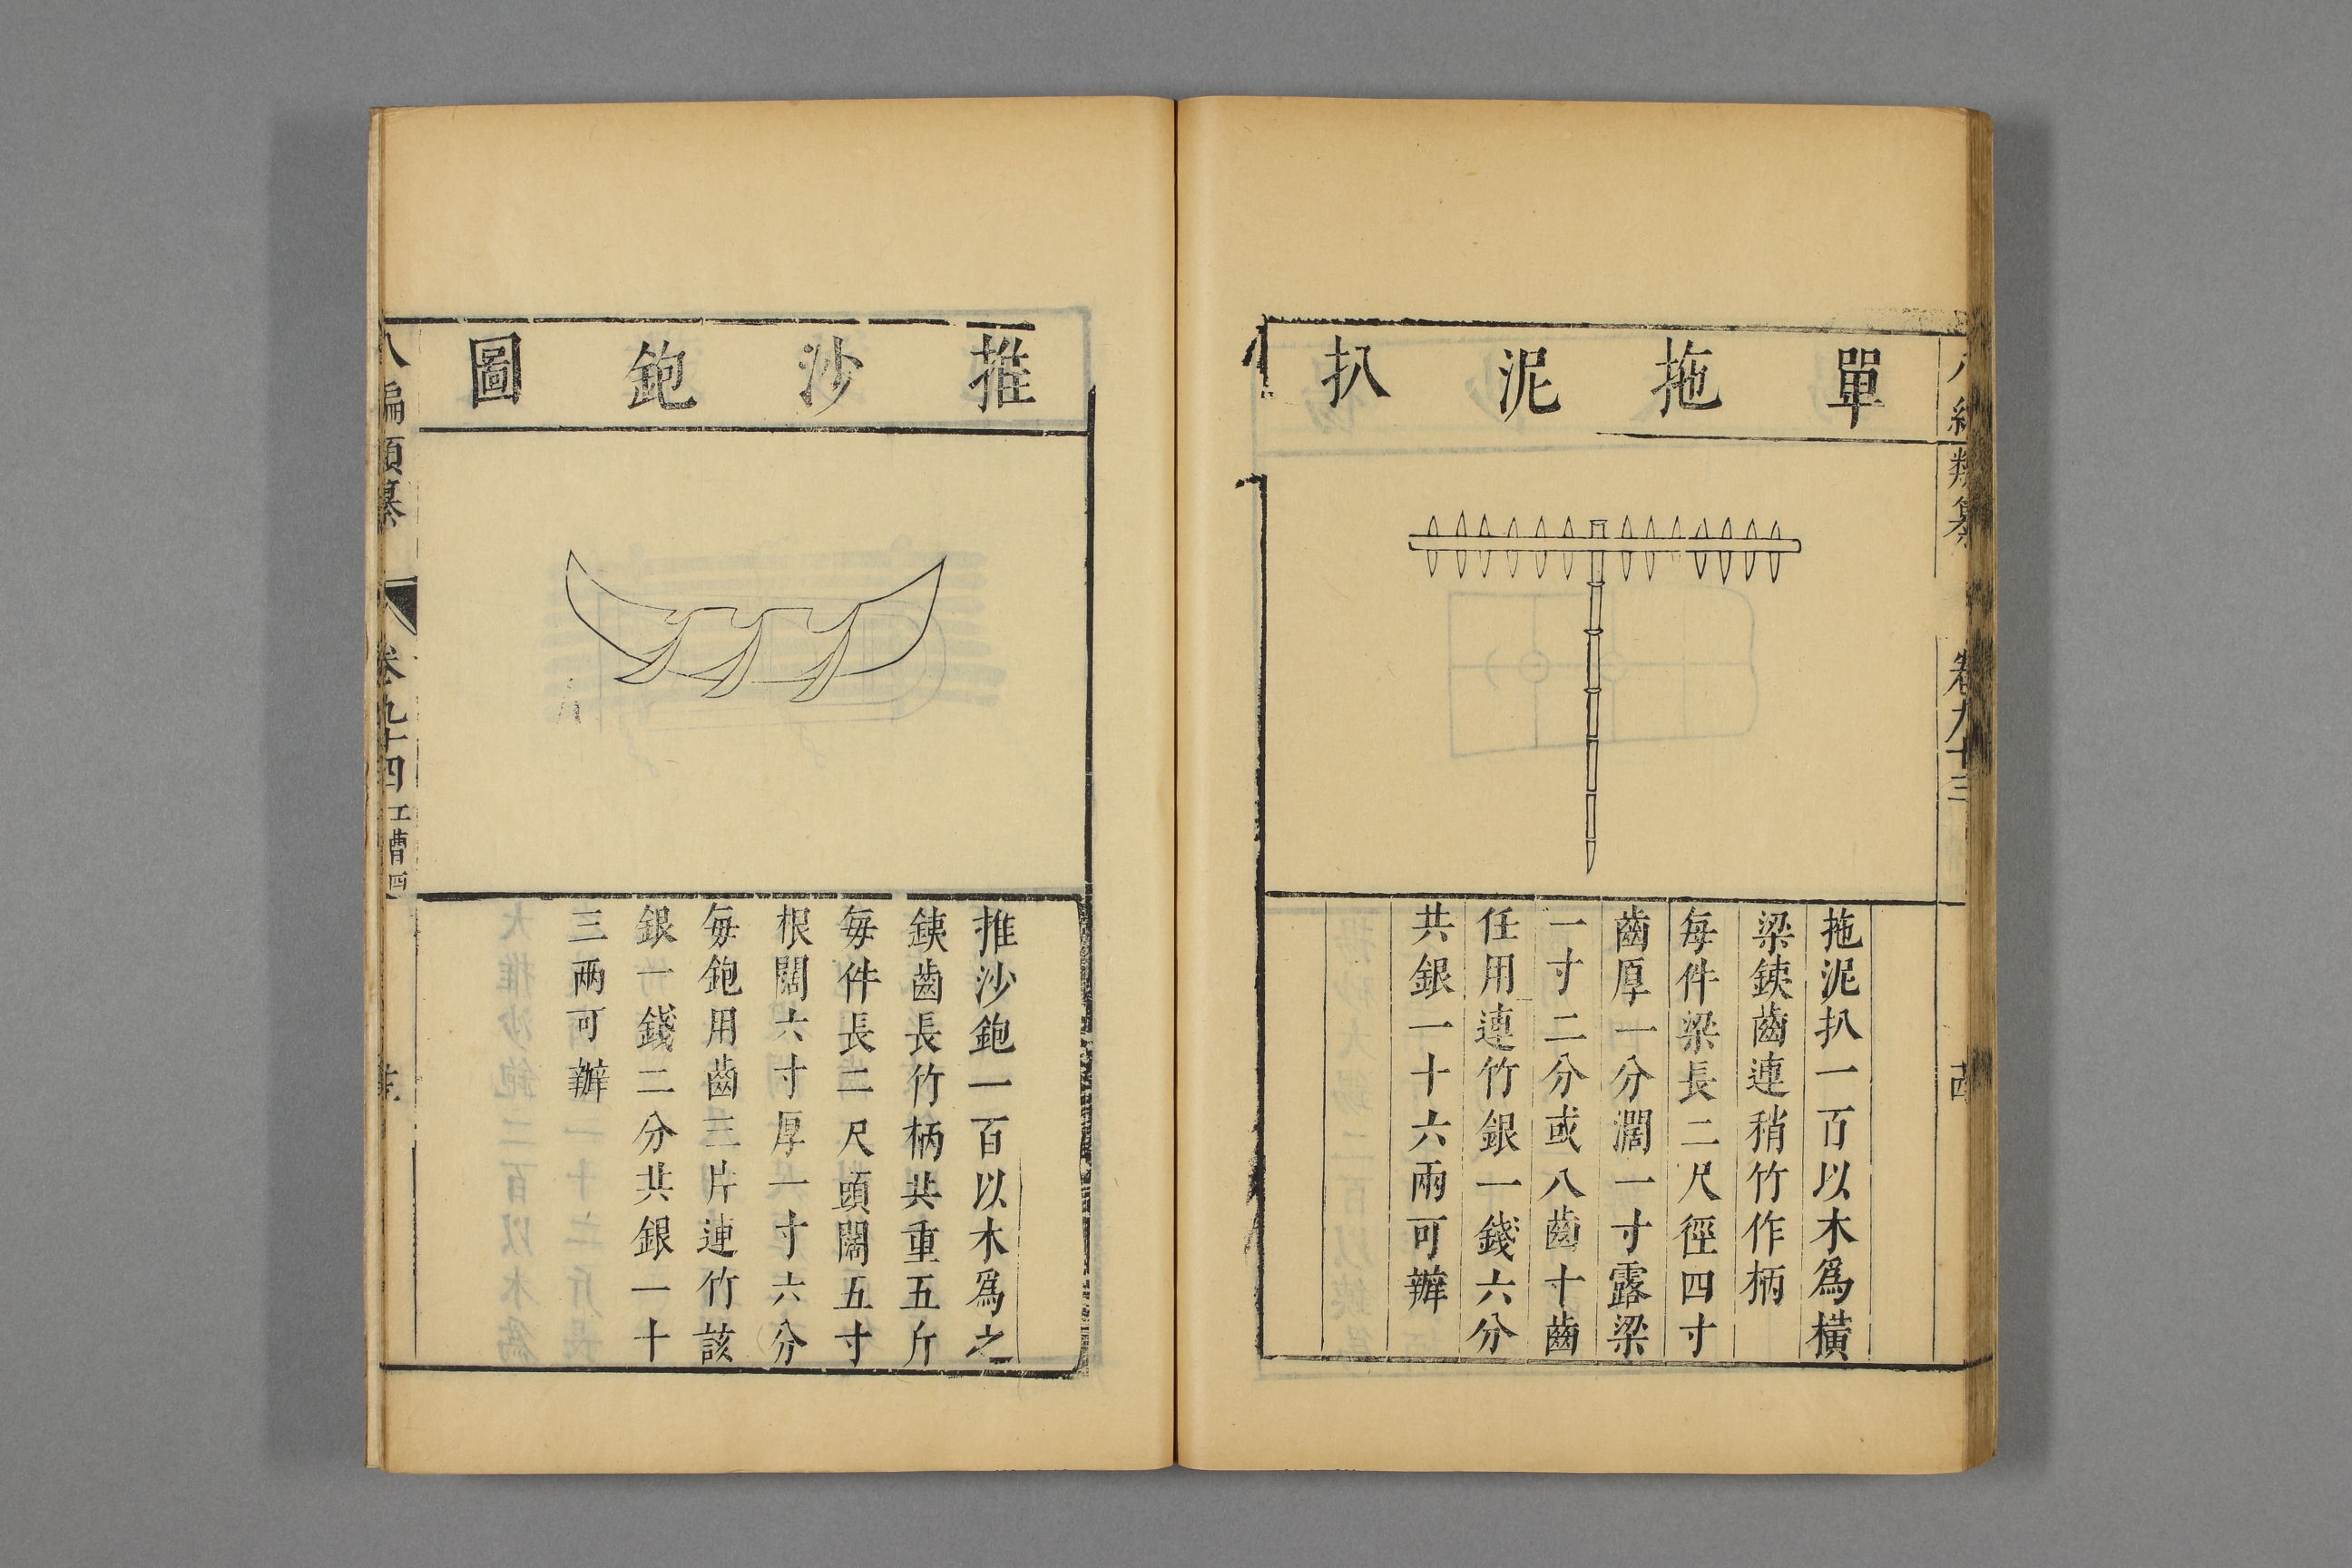 單拖泥扒
拖泥扒一百以木爲橫
梁鐵齒連稍竹作柄
每件梁長二尺徑四寸
齒厚一分濶一寸露梁
一寸二分或八齒十齒
任用連竹銀一錢六分
共銀一十六兩可辦
推沙鉋圖
推沙鉋一百以木爲之
鐵齒長竹柄共重五斤
每件長二尺頭闊五寸
根闊六寸厚一寸六分
每鉋用齒三片連竹該
銀一錢二分共銀一十
三两可辦
八編類纂
卷九十四
工漕四